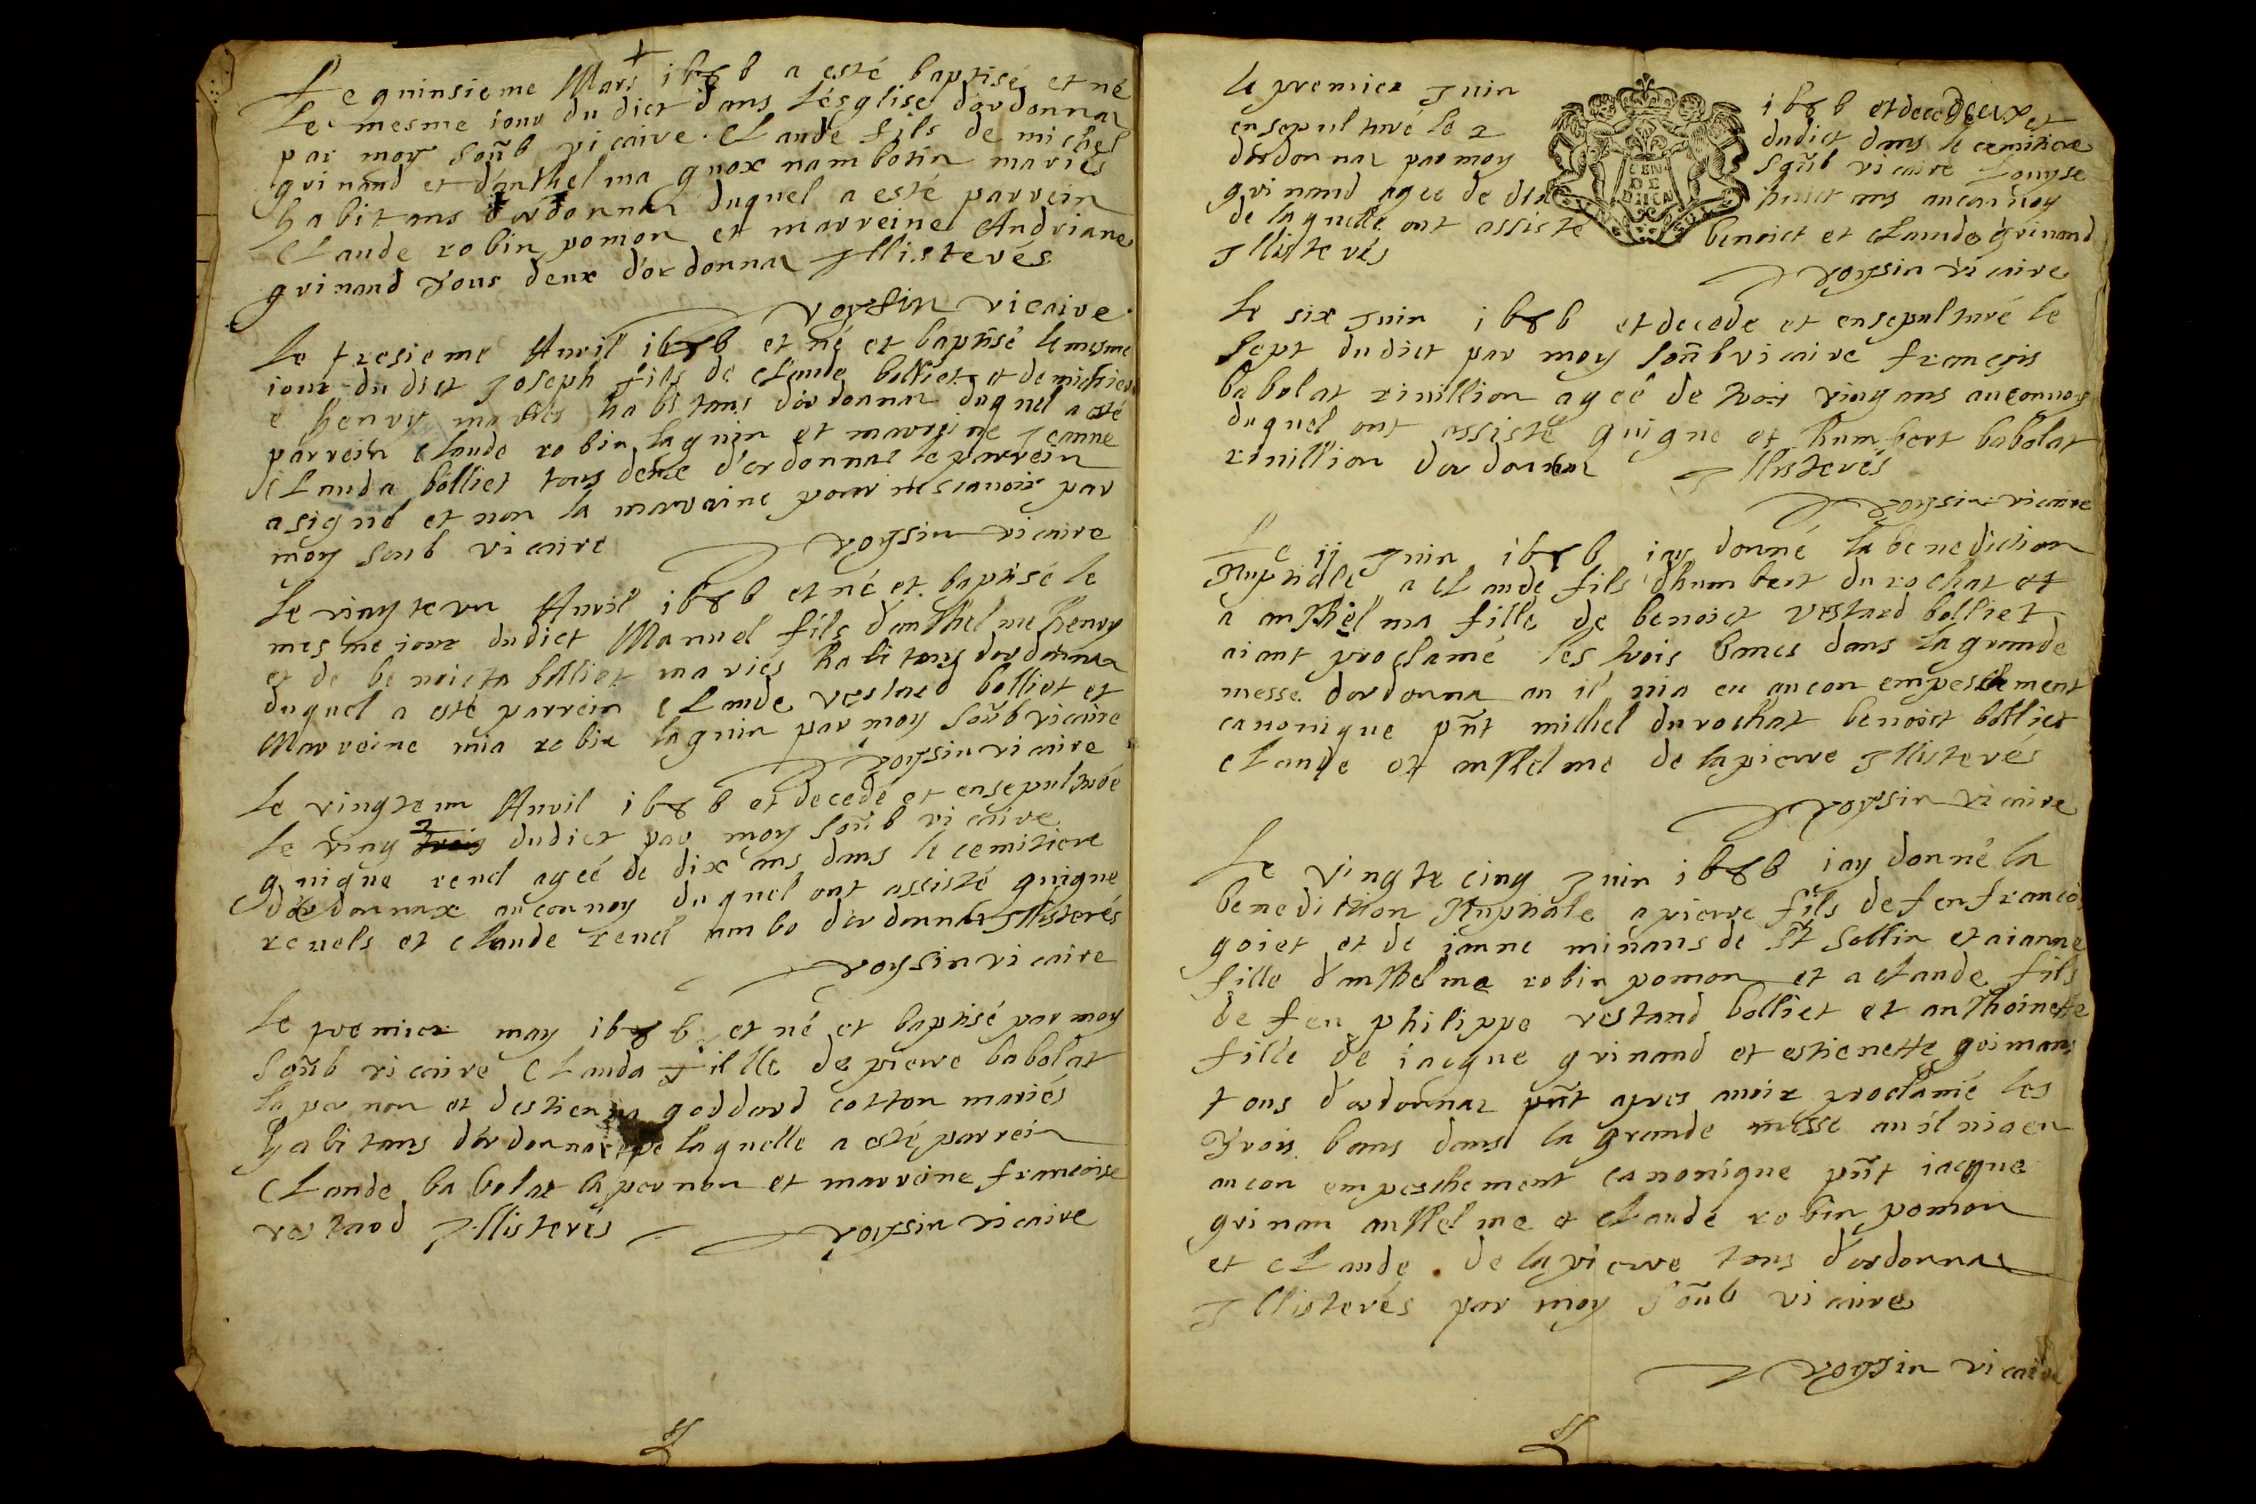 Le quinsieme Mars 1686 a esté baptisé et né
le mesme iour du dict dans l'ésglise d'ordonnar
par moy souñb vicaire. Claude fils de michel
grinand et d'anthelma quox nambotin mariés
habitans d'ordonnar duquel a esté parrein
Claude robin pomon et marreine Andriane
grinand tous deux d'ordonnar Illisterés
voysin vicaire
le tresieme Auril 1686 et né et baptisé le mesme
iour du dict Joseph fils de claude bolliet et de
e henry mariés habitans d'ordonnar duquel a esté
parrein claude robin laguin et marreine Jeanne
clauda bolliet tous deux d'ordonnar le parrein
a signé et non la marraine pour ne scauoir par
moy soub vicaire voysin vicaire
Le vingt e vn Auril 1686 et né et baptisé le
mesme iour dudict Manuel fils d'anthelme henry
et de benoicta bolliet mariés habitans dordonnar
duquel a esté parrein claude vestard bolliet et
Marreine mia robin laguin par moy souñb vicaire
voysin vicaire
Le vingt e un Auril 1686 et decedé et ensepulturé
le ving trois 2 dudict par moy souñb vicaire
guigue reuel ageé de dix ans dans le cemitiere
dordonnax au conuoy duquel ont assisté guigue
reuels et claude reuel ambo d'ordonnar Illisterés
voysin vicaire
Le premier may 1686 et né et baptisé par moy
souñb vicaire Clauda fillle de pierre babolat
la pernon et destienna goddard cotton mariés
habitans d'ordonnar de laquelle a esté parrein
Claude babolat la pernon et marreine francoise
vestard Illisterés voysin vicaire
le premier Juin 1686 et decedeé et
ensepulturé le 2 deux dudict dans le cemitiere
d'ordonnar par moy souñb vicaire Louyse
grinand agee de dix huict ans au conuoy
de laquelle ont assisté benoict et claude grinand
Illisterés voysin vicaire
GEN DE
Le six Juin 1686 et decede et ensepulturé le
sept dudict par moy souñb vicaire francois
babolat riuillion ageé de trois ving ans au conuoy
duquel ont assisté guigue et humbert babolat
riuillion dordonnar Illisterés
voysin vicaire
Le ii Juin 1686 iay donné la benediction
Nuptiale a claude fils d'humbert durochat et
a anthelma fille de benoict vestard bolliet
aiant proclamé les trois bancs dans la grande
messe dordonna au il nia eu aucon empeschement
canonique pñt michel durochat benoict bolliet
claude et anthelme de lapierre Illisterés
voysin vicaire
Le vingt e cinq Juin 1686 iay donné la
benediction Nuptiale a pierre fils de feu francois
goiet et de ianne minans de st sollin et a ianne
fille d'anthelme robin pomon et a claude fils
de feu philippe vestand bolliet et anthoinette
fille de iacque grinand et estienette
tous d'ordonnar pñt apres auoir proclamé les
trois bans dans la grande messe au il nia eu
aucon empeschement canonique pñt iacque
grinan anthelme et claude robin pomon
et claude de lapierre tous d'ordonnar
Illisterés par moy souñb vicaire
voysin vicaire